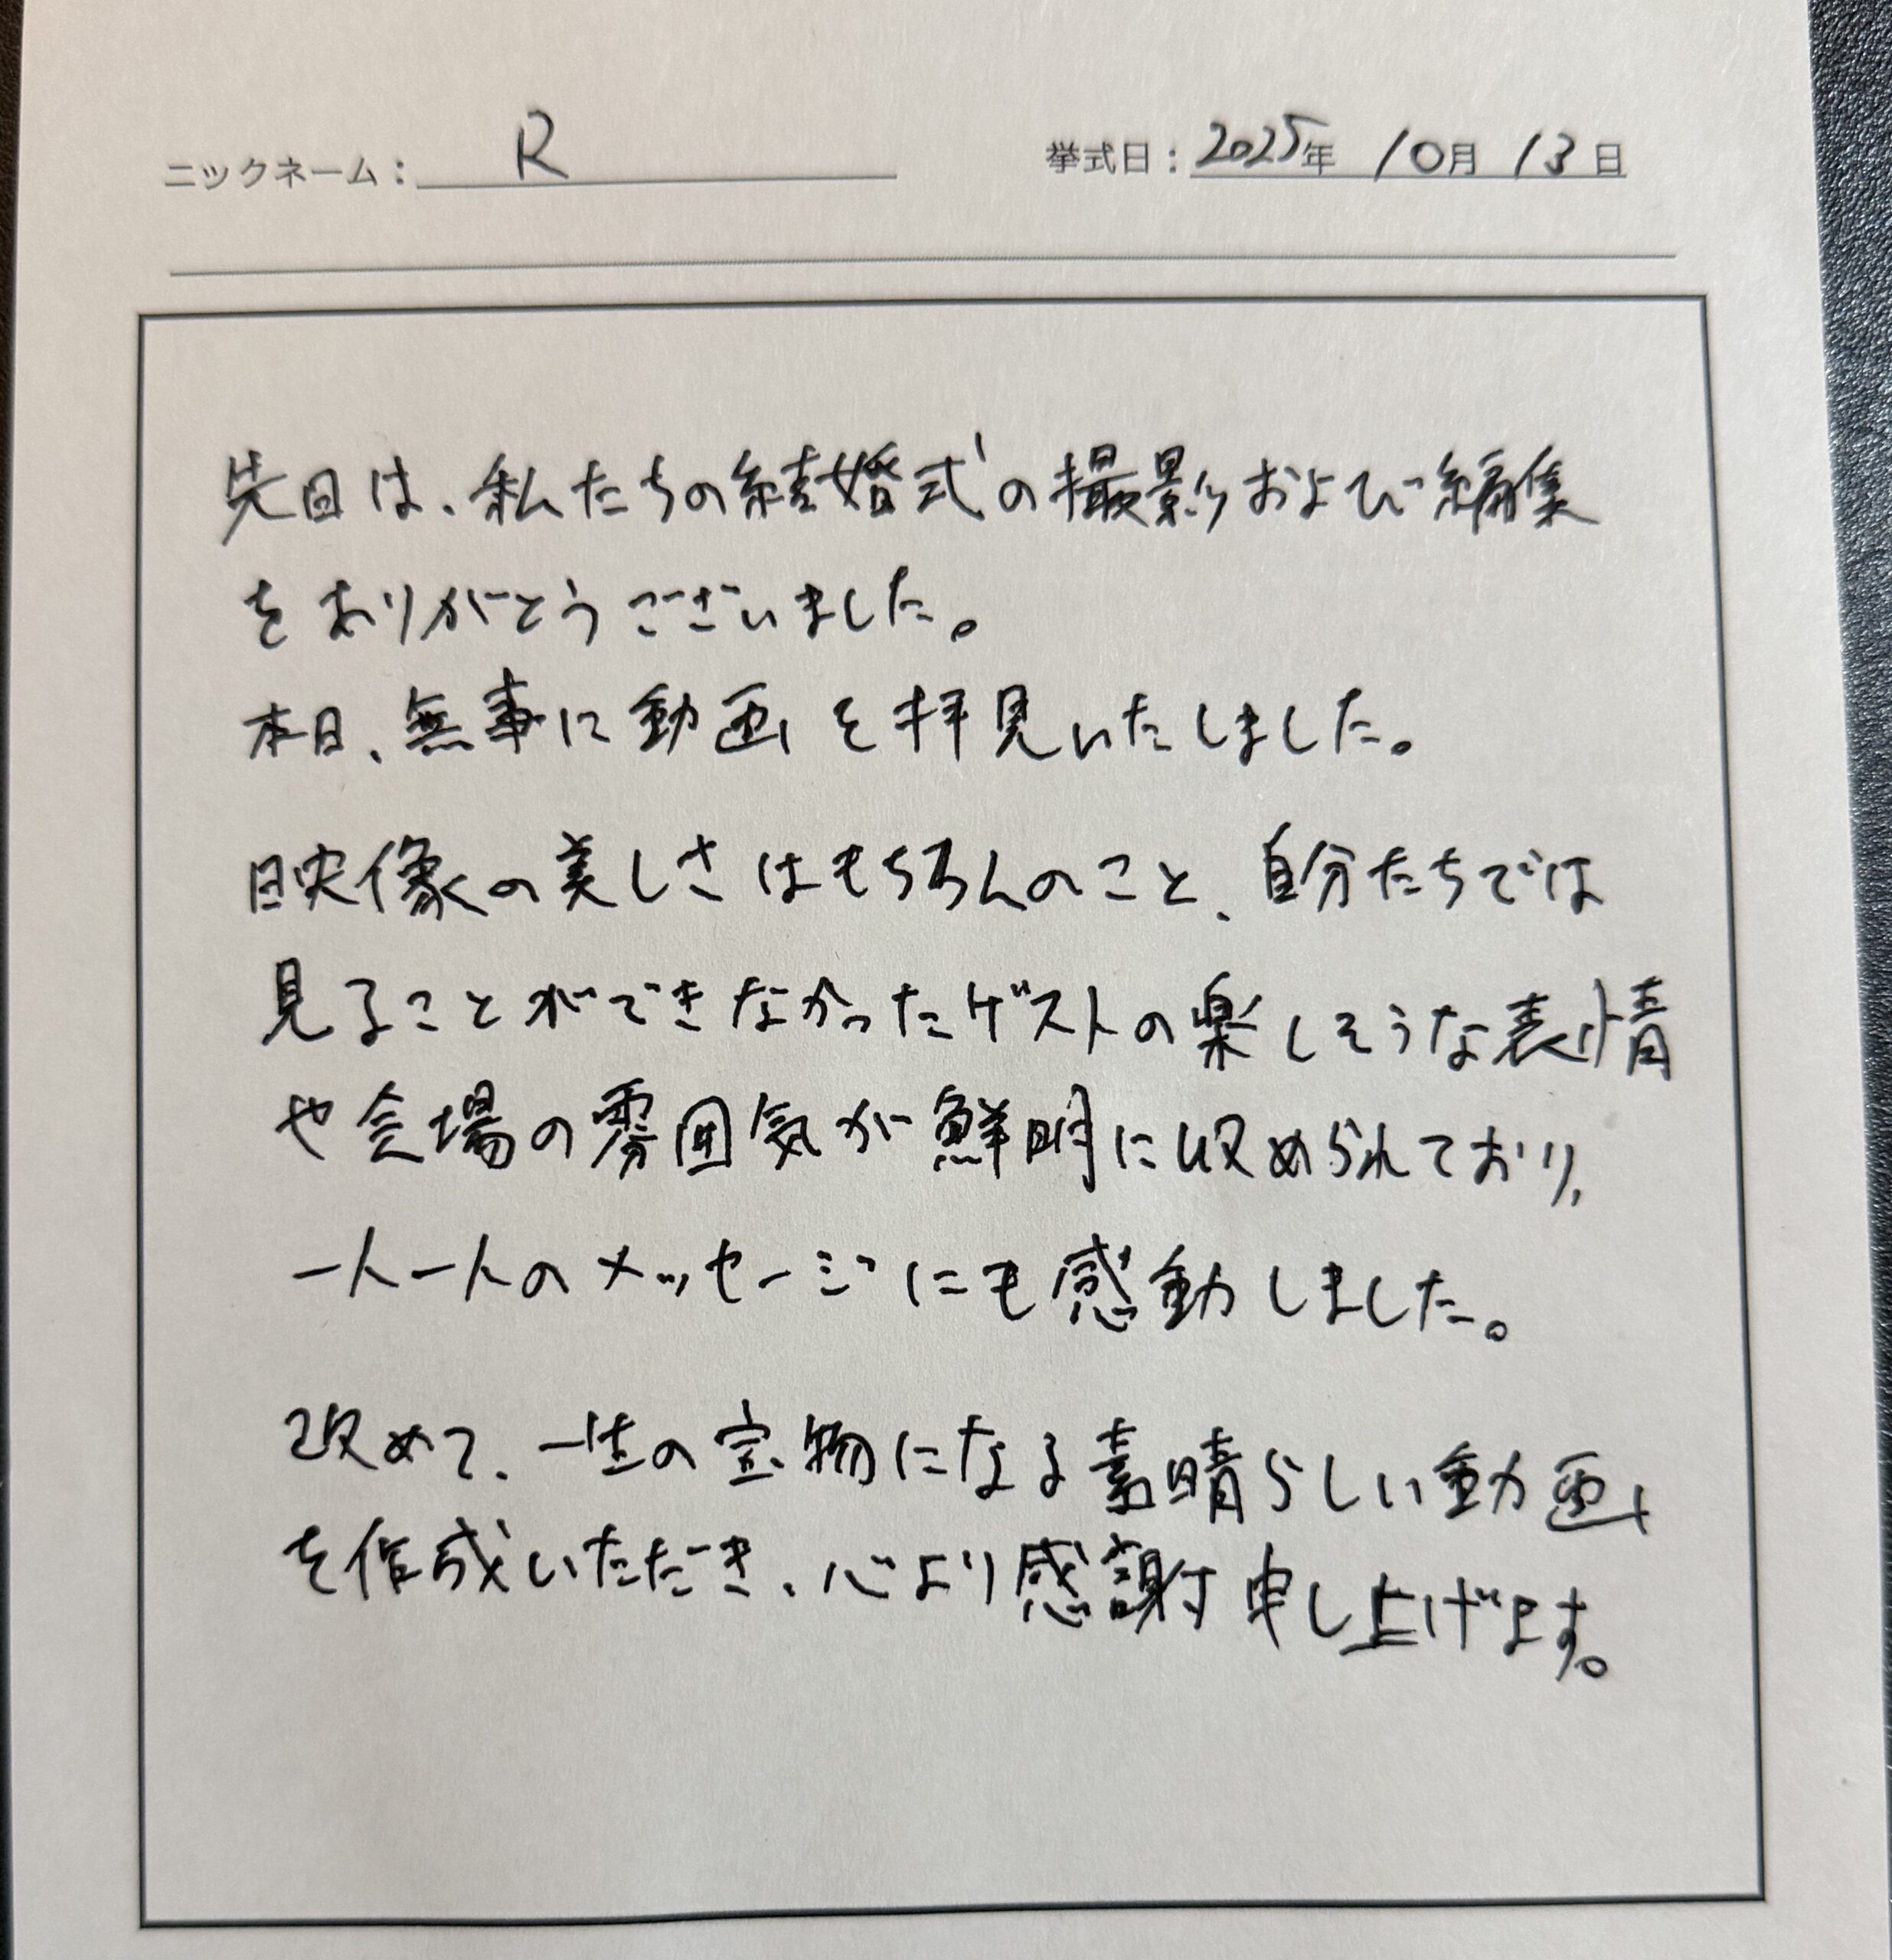 ニックネーム： R 挙式日：2025年 10月 13日
先日は、私たちの結婚式の撮影および編集
をありがとうございました。
本日、無事に動画を拝見いたしました。
映像の美しさはもちろんのこと、自分たちでは
見ることができなかったゲストの楽しそうな表情
や会場の雰囲気が鮮明に収められており、
一人一人のメッセージにも感動しました。
改めて、一生の宝物になる素晴らしい動画
を作成いただき、心より感謝申し上げます。